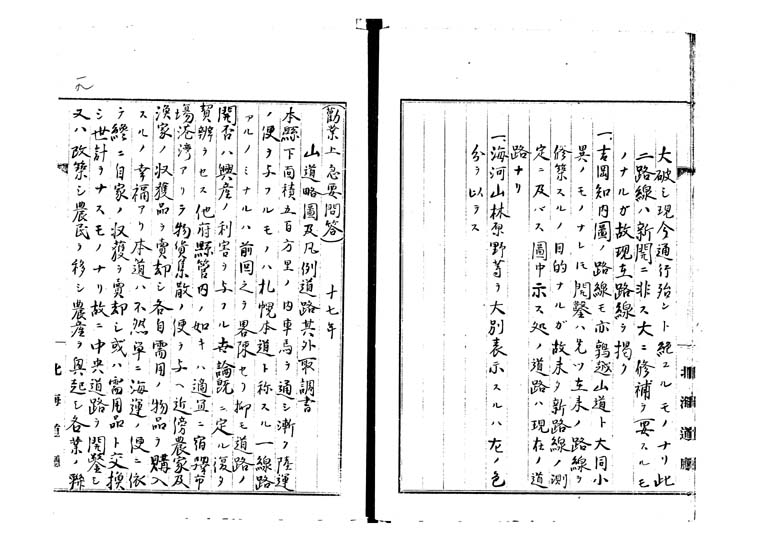 大破シ現今通行殆ント絶ユルモノナリ此
二路線ハ新開ニ非ス大ニ修補ヲ要スルモ
ノナルガ故現在路線ヲ掲ク
一吉岡知内圖ノ路線モ亦鶉越山道ト大同小
異ノモノナレ𪜈開鑿ハ先ツ在来ノ路線ヲ
修築スルノ目的ナルガ故未タ新路線ノ測
定ニ及バス圖中示ス処ノ道路ハ現在ノ道
路ナリ
一海河山林原野等ヲ大別表示スルハ左ノ色
分ヲ以テス
北海道廳
(勸業上急要問答) 十七年
山道略圖及凡例道路其外取調書
本縣下面積五百方里ノ内車馬ヲ通シ漸ク陸運
ノ便ヲ与フルモノハ札幌本道ト称スル一線路
アルノミナルハ前回之ヲ畧陳セリ抑モ道路ノ
開否ハ興産ノ利害ヲ与フル世論既ニ定ル復タ
贅辨ヲセス他府縣管内ノ如キハ適宜ニ宿驛市
場港湾アリテ物貨集散ノ便ヲ与ヘ近傍農家及
漁家ノ収獲品ヲ賣却シ各自需用ノ物品ヲ購入
スルノ幸福アリ本道ハ不然単ニ海運ノ便ニ依
テ終ニ自家ノ収獲ヲ賣却シ或ハ需用品ト交換
シ世計ヲナスモノナリ故ニ中央道路ヲ開鑿シ
又ハ改築シ農民ヲ移シ農産ヲ興起シ各業ノ聯
北海道廳
一九